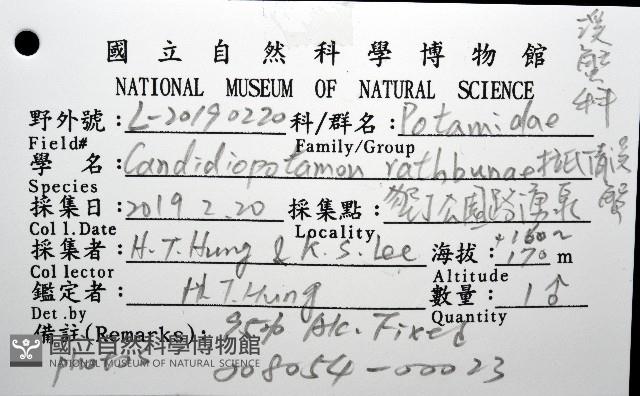 國立自然科學博物館
NATIONAL MUSEUM OF NATURAL SCIENCE
溪蟹科
野外號：L-20190220 科/群名：Potamidae
Field# Family/Group
學名：Candidiopotamon rathbunae 拉氏清溪蟹
Species
採集日：2019 2.20 採集點：墾丁公園路湧泉
Col l.Date Locality
採集者：H.T.Hung & K.S.Lee 海拔：160~170 m
Col lector Altitude
鑑定者：H.T.Hung 數量：1♂
Det.by Quantity
備註(Remarks)：95% Alc. Fixed
國立自然科學博物館
NATIONAL MUSEUM OF NATURAL SCIENCE
008054-00023